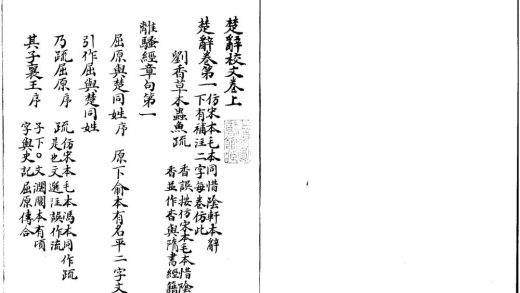 楚辭校文卷上
楚辭卷第一 仿宋本毛本同惜陰軒本辭
下有補注二字每卷仿此
劉杳草本蟲魚疏 杳誤按仿宋本毛本惜陰
香並作杳與隋書經籍
離騷經章句第一
屈原與楚同姓 序 原下俞本有名平二字文
引作屈與楚同姓
乃疏屈原 序 疏仿宋本毛本馮本同作疏
是也文選注誤作流
其子襄王 序 子下○文瀾閣本有頃
字與史記屈原傳合